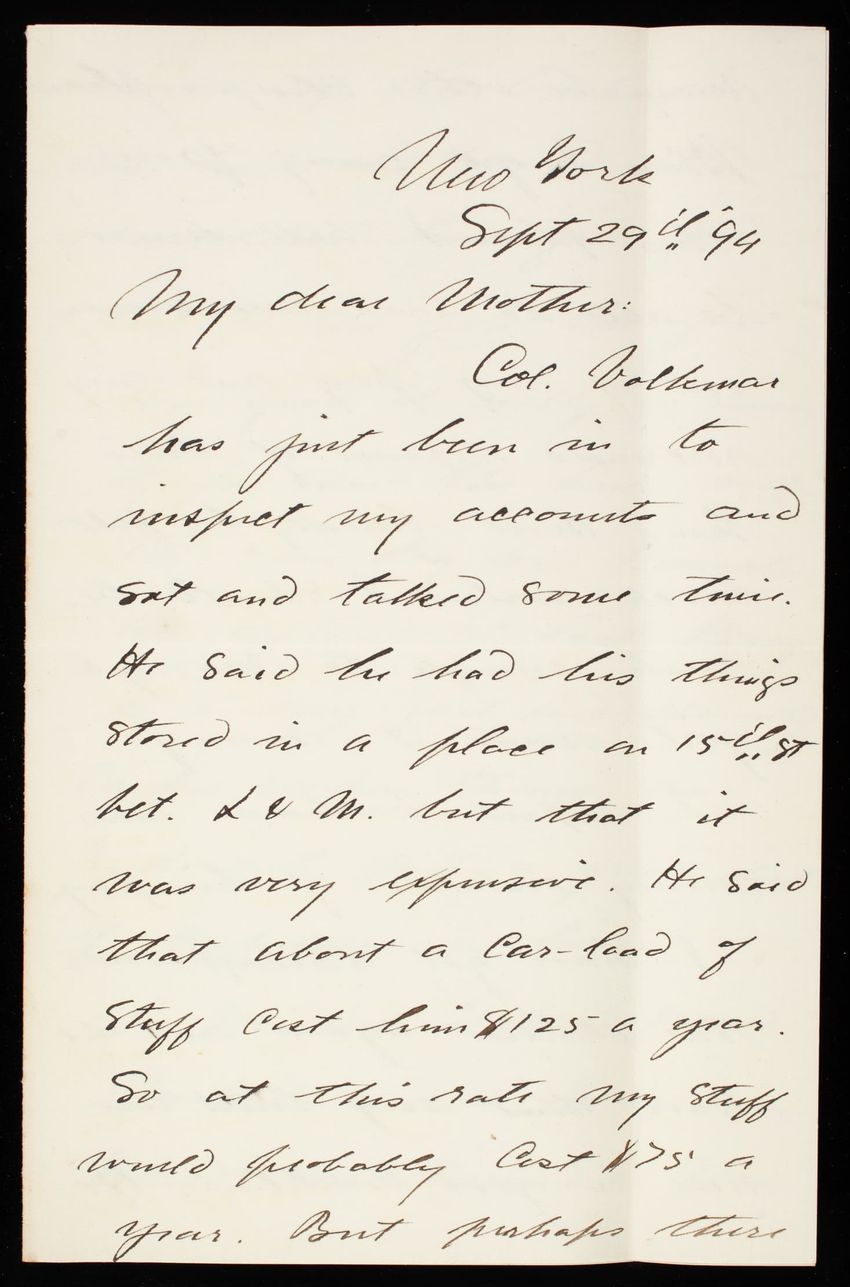 New York
Sept 29th '94
My dear Mother:
Col. Volkmar
has just been in to
inspect my accounts and
sat and talked some time.
He said he had his things
stored in a place on 15th St
bet. L & M. but that it
was very expensive. He said
that about a car-load of
stuff cost him $125 a year.
So at this rate my stuff
would probably cost $75 a
year. But perhaps there